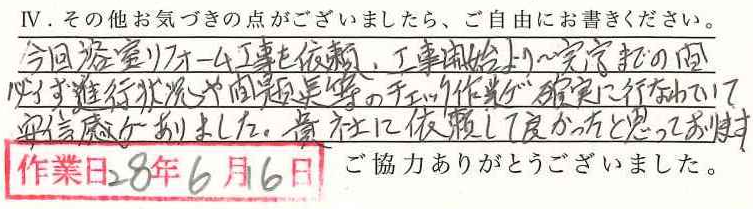 Ⅳ．その他お気づきの点がございましたら、ご自由にお書きください。
今回浴室リフォーム工事を依頼、工事開始より〜完了までの間
必ず進行状況や問題点等のチェック作業が確実に行なわれていて
安信感がありました。貴社に依頼して良かったと思っております
作業日28年6月16日
ご協力ありがとうございました。